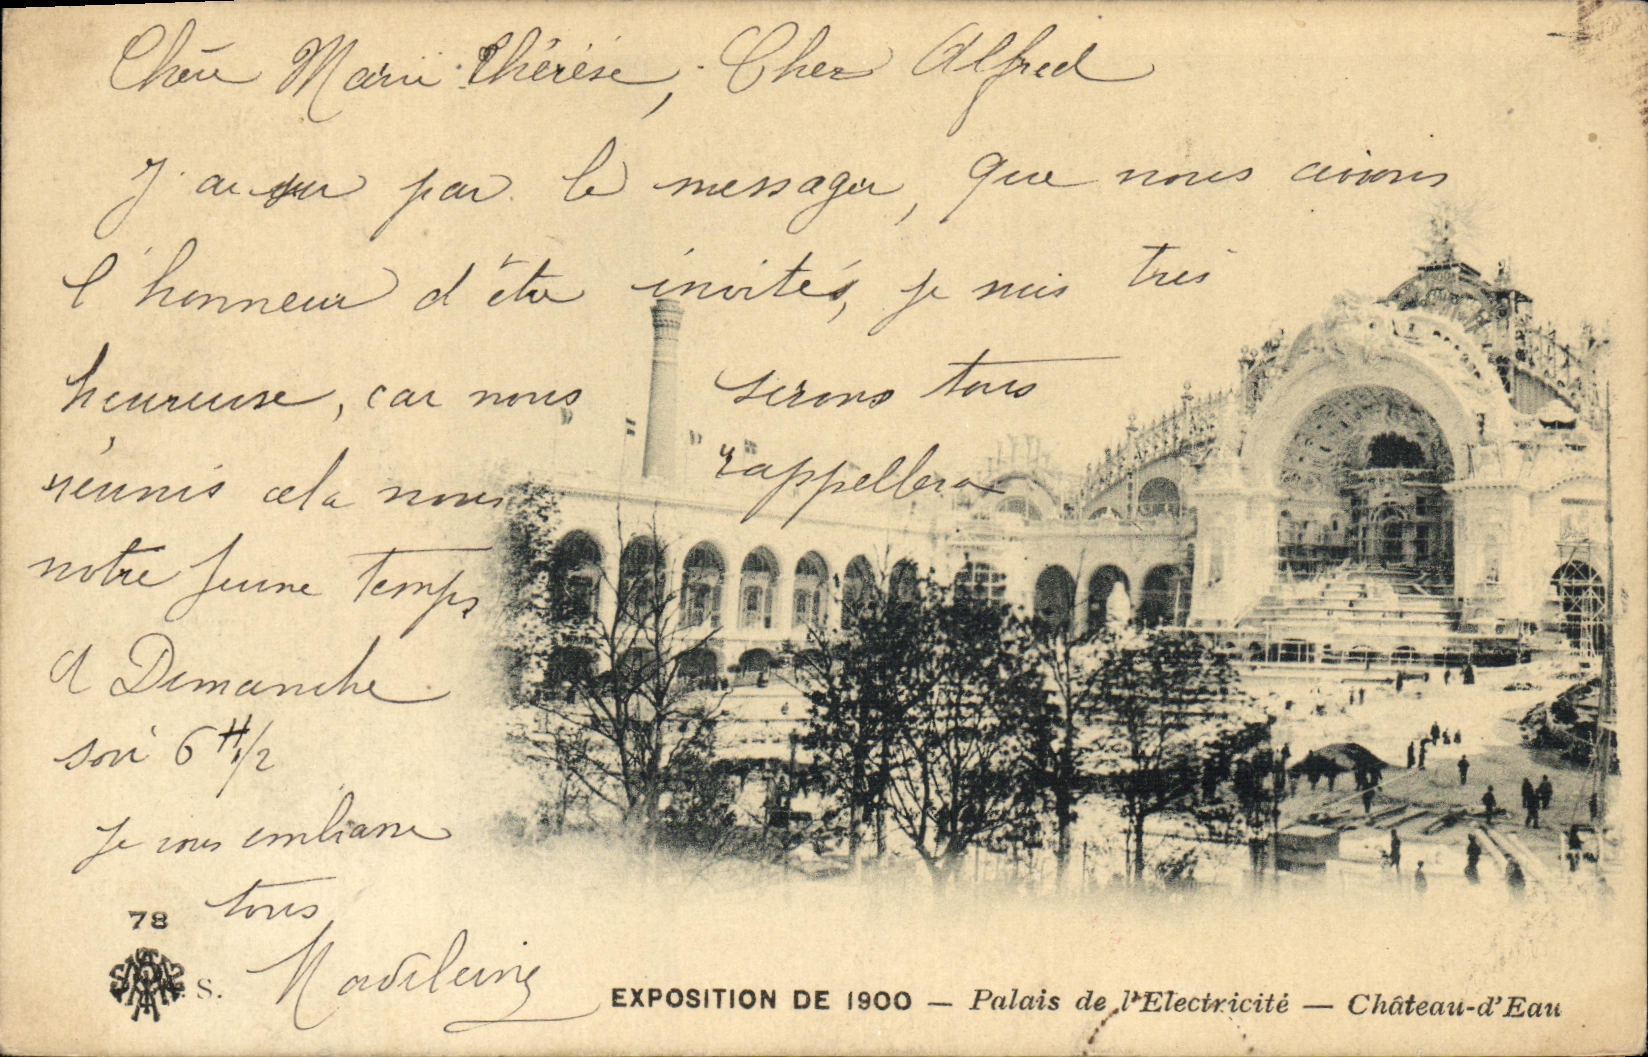 Chère Marie Thérèse, Cher Alfred
J'ai su par le messager, que nous avions
l'honneur d'être invités, je suis très
heureuse, car nous serons tous
réunis cela nous rappellera
notre jeune temps
A Dimanche
soir 6 H 1/2
Je vous embrasse
tous
Madeleine
78
S.
EXPOSITION DE 1900 — Palais de l'Electricité — Château-d'Eau